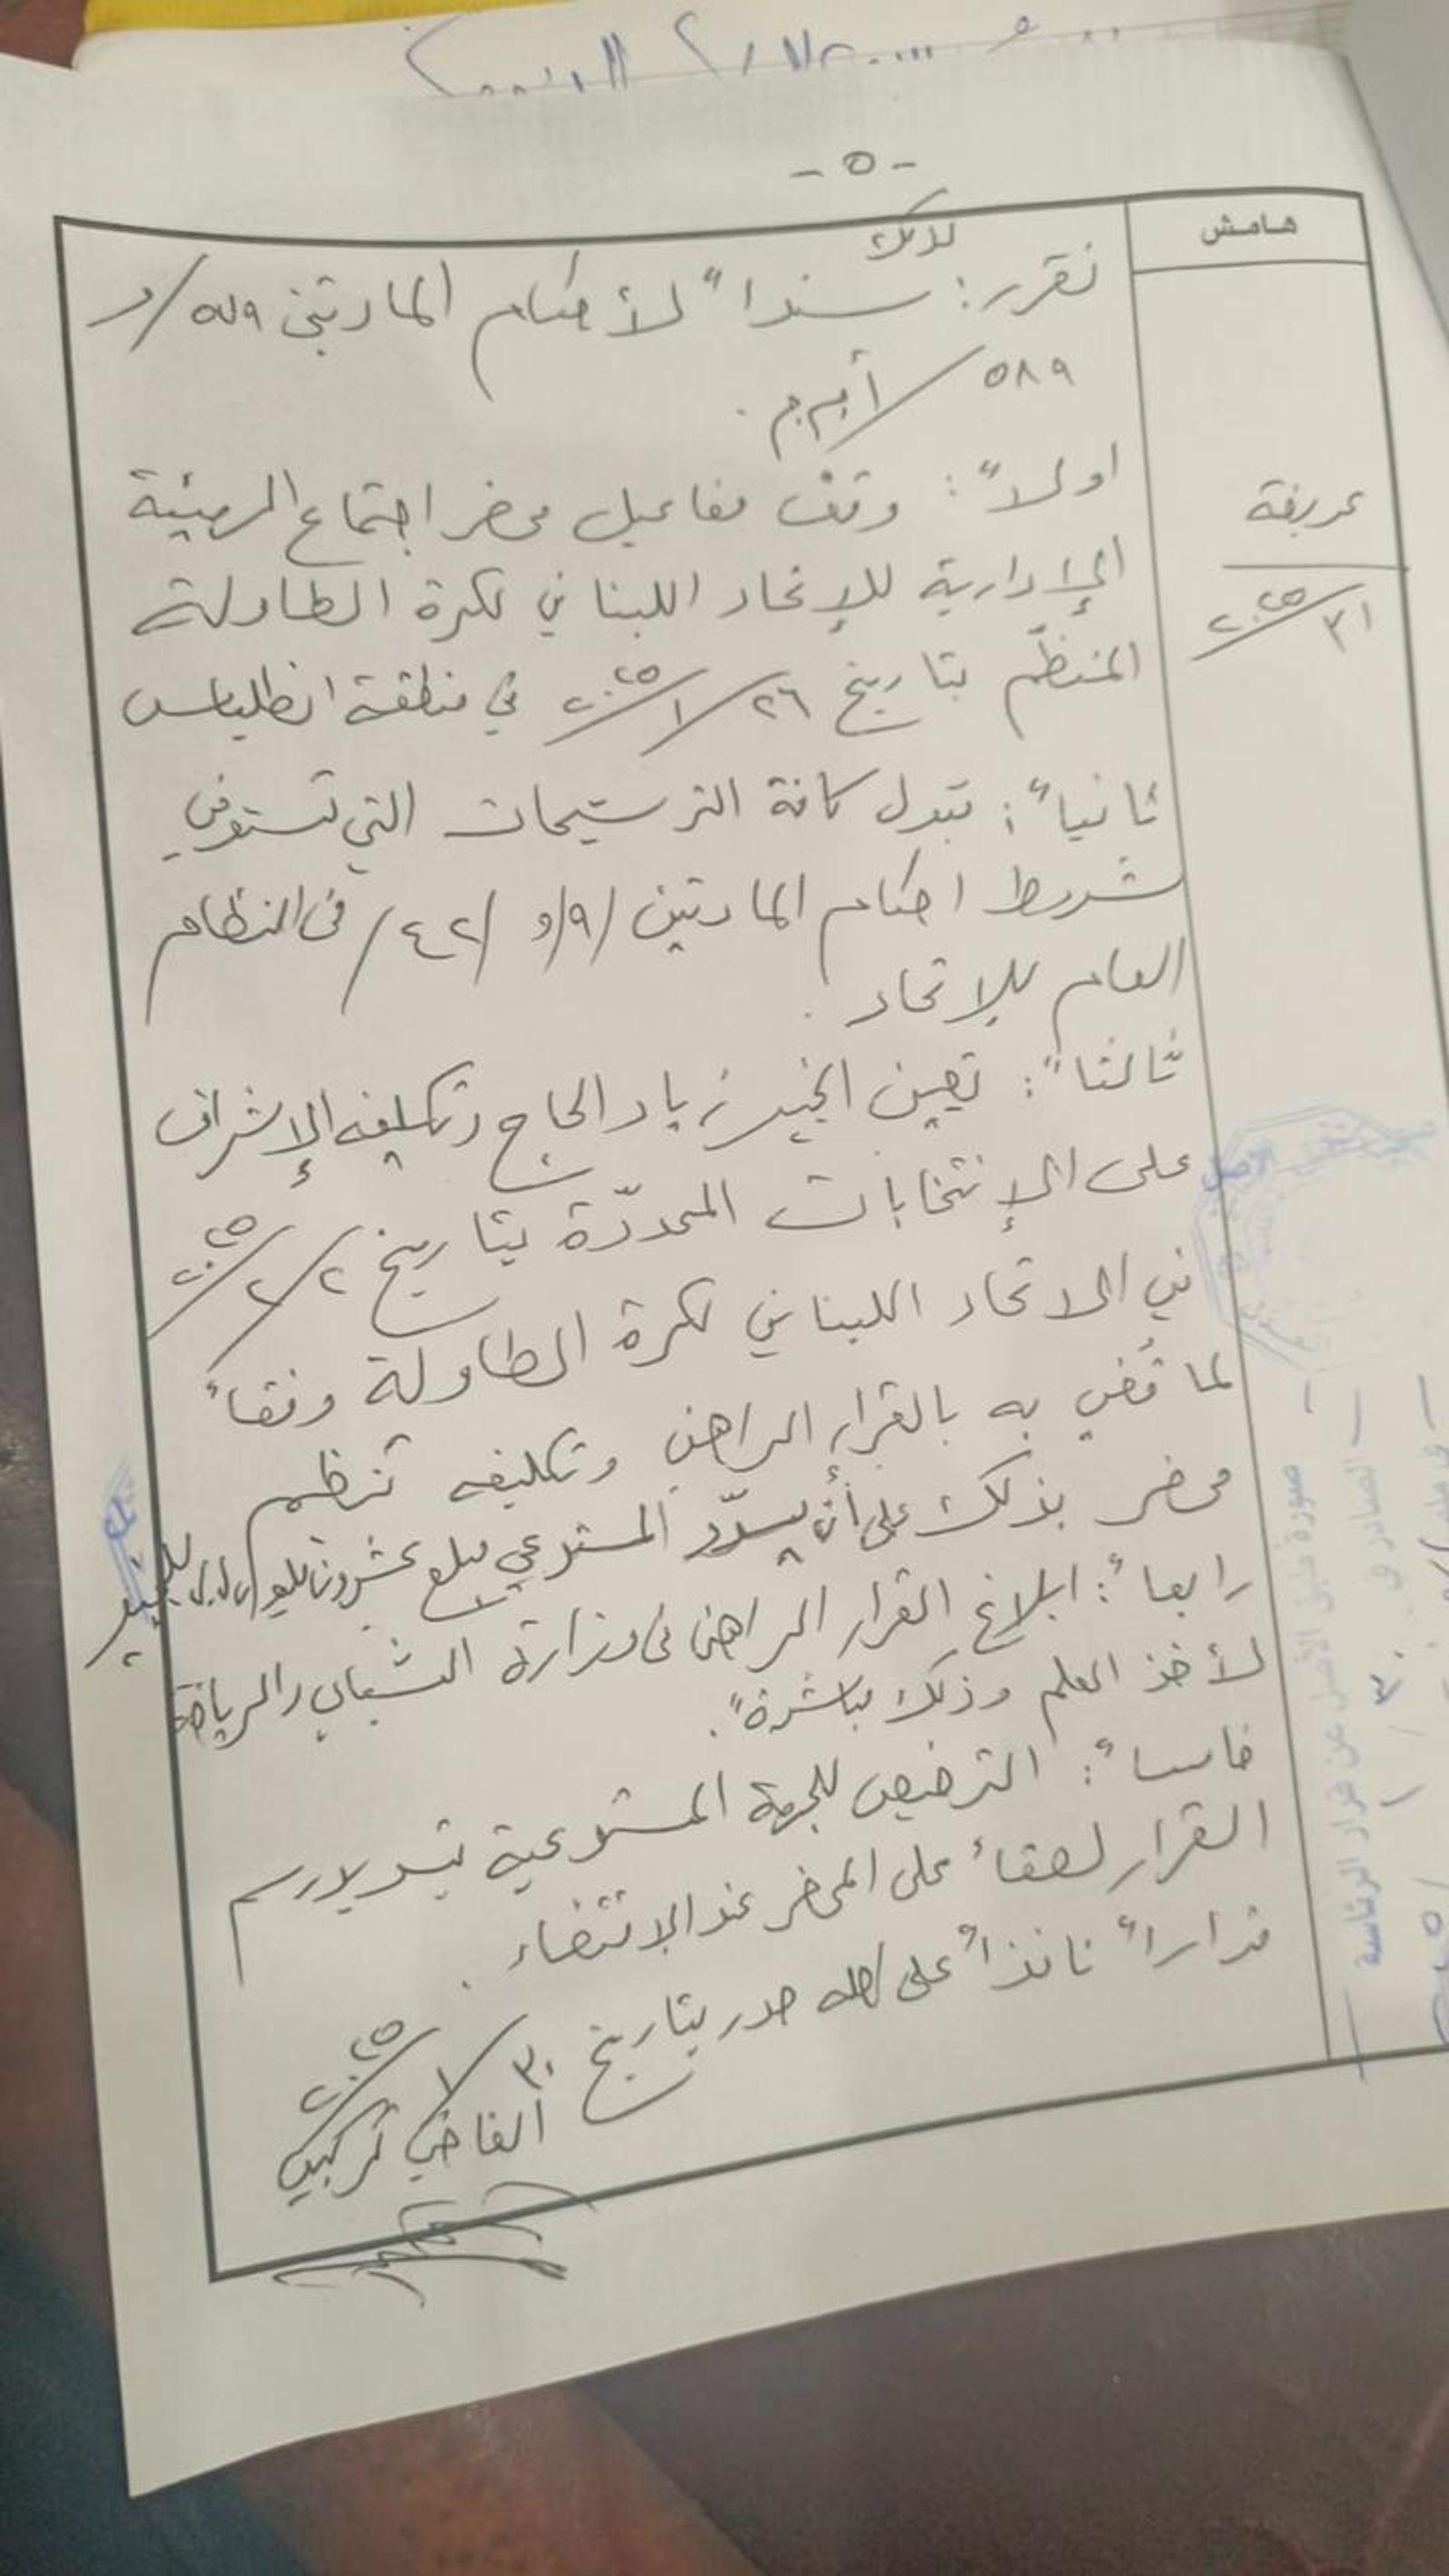 - ٥ -
هامش
لذلك
نقرر: سنداً لأحكام المادتين ٥٧٩/و
٥٨٩/أ.م.م.
اولاً: وقف مفاعيل محضر اجتماع الهيئة
الإدارية للإتحاد اللبناني لكرة الطاولة
المنظّم بتاريخ ٢٦/١/٢٠٢٥ في منطقة انطلياس
ثانياً: قبول كافة الترشيحات التي تستوفي
شروط احكام المادتين /٩/ و /٤٢/ من النظام
العام للإتحاد.
ثالثاً: تعيين الخبير زياد الحاج وتكليفه الإشراف
على الإنتخابات المحدّدة بتاريخ ٢/٢/٢٠٢٥
في الاتحاد اللبناني لكرة الطاولة وفقاً
لما قُضي به بالقرار الراهن وتكليفه تنظيم
محضر بذلك على أن يسدّد المستدعي مبلغ عشرون مليون ل.ل. للخبير
رابعاً: ابلاغ القرار الراهن من وزارة الشباب والرياضة
لأخذ العلم وذلك مباشرةً.
خامساً: الترخيص للجهة المستدعية بتسديد رسم
القرار لصقاً على المحضر عند الاقتضاء.
قراراً نافذاً على اصله صدر بتاريخ ٣٠/١/٢٠٢٥
القاضي
عريضة
٣١/٢٠٢٥
صورة طبق الأصل عن قرار الرئاسة
الصادر في ٣٠/١/